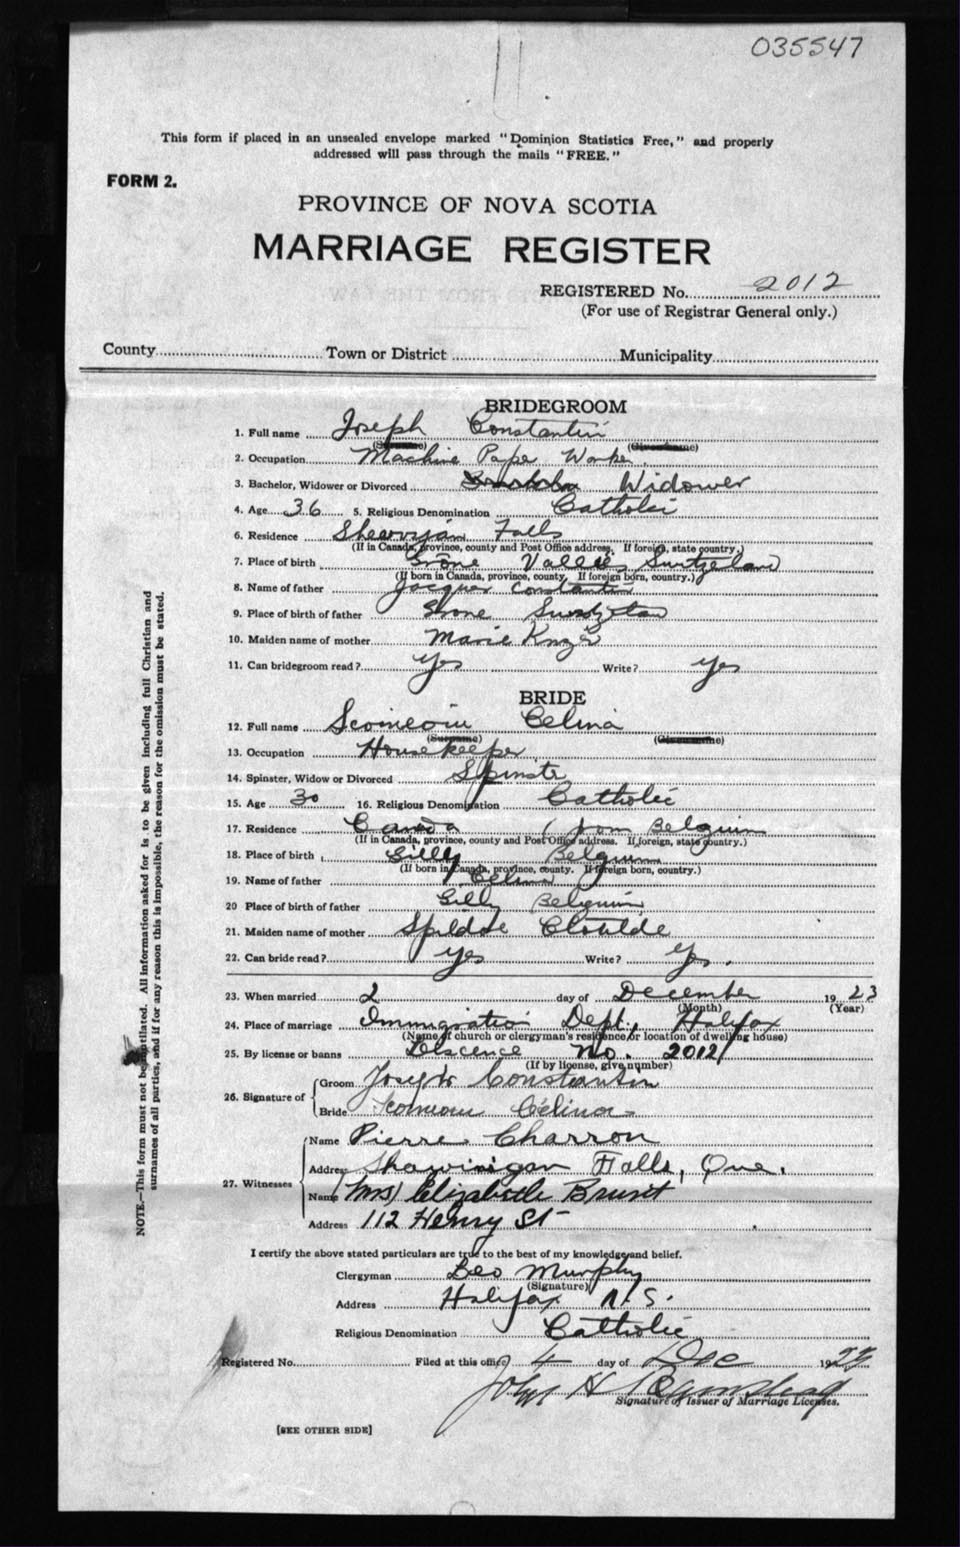 035547
This form if placed in an unsealed envelope marked "Dominion Statistics Free," and properly
addressed will pass through the mails "FREE."
FORM 2.
PROVINCE OF NOVA SCOTIA
MARRIAGE REGISTER
REGISTERED No. 2012
(For use of Registrar General only.)
County Town or District Municipality
BRIDEGROOM
1. Full name Joseph Constantin
2. Occupation Machine Paper Worker
3. Bachelor, Widower or Divorced Widower
4. Age 36 5. Religious Denomination Catholic
6. Residence Falls
(If in Canada, province, county and Post Office address. If foreign, state country.)
7. Place of birth Grône
(If born in Canada, province, county. If foreign born, country.)
8. Name of father Jacques Constantin
9. Place of birth of father Grone
10. Maiden name of mother Marie
11. Can bridegroom read? Yes Write? Yes
BRIDE
12. Full name Celina
(Surname)
13. Occupation Housekeeper
14. Spinster, Widow or Divorced Spinster
15. Age 30 16. Religious Denomination Catholic
17. Residence Canada ( from Belgium
(If in Canada, province, county and Post Office address. If foreign, state country.)
18. Place of birth Gilly Belgium
(If born in Canada, province, county. If foreign born, country.)
19. Name of father Celina
20 Place of birth of father Gilly Belgium
21. Maiden name of mother Clotilde
22. Can bride read? Yes Write? Yes.
23. When married 2 day of December 1923
(Month) (Year)
24. Place of marriage Immigration Dept., Halifax
(Name of church or clergyman's residence or location of dwelling house)
25. By license or banns No. 2012
(If by license, give number)
26. Signature of
Groom Joseph Constantin
Bride Célina
27. Witnesses
Name Pierre Charron
Address Shawinigan Falls, Que.
Name (Mrs) Elizabeth
Address 112 Henry St
I certify the above stated particulars are true to the best of my knowledge and belief.
Clergyman Leo Murphy
(Signature)
Address Halifax N.S.
Religious Denomination Catholic
Registered No. Filed at this office 4 day of Dec 1923
John H
Signature of Issuer of Marriage Licenses.
[SEE OTHER SIDE]
NOTE.—This form must not be mutilated. All information asked for is to be given including full Christian and
surnames of all parties, and if for any reason this is impossible, the reason for the omission must be stated.